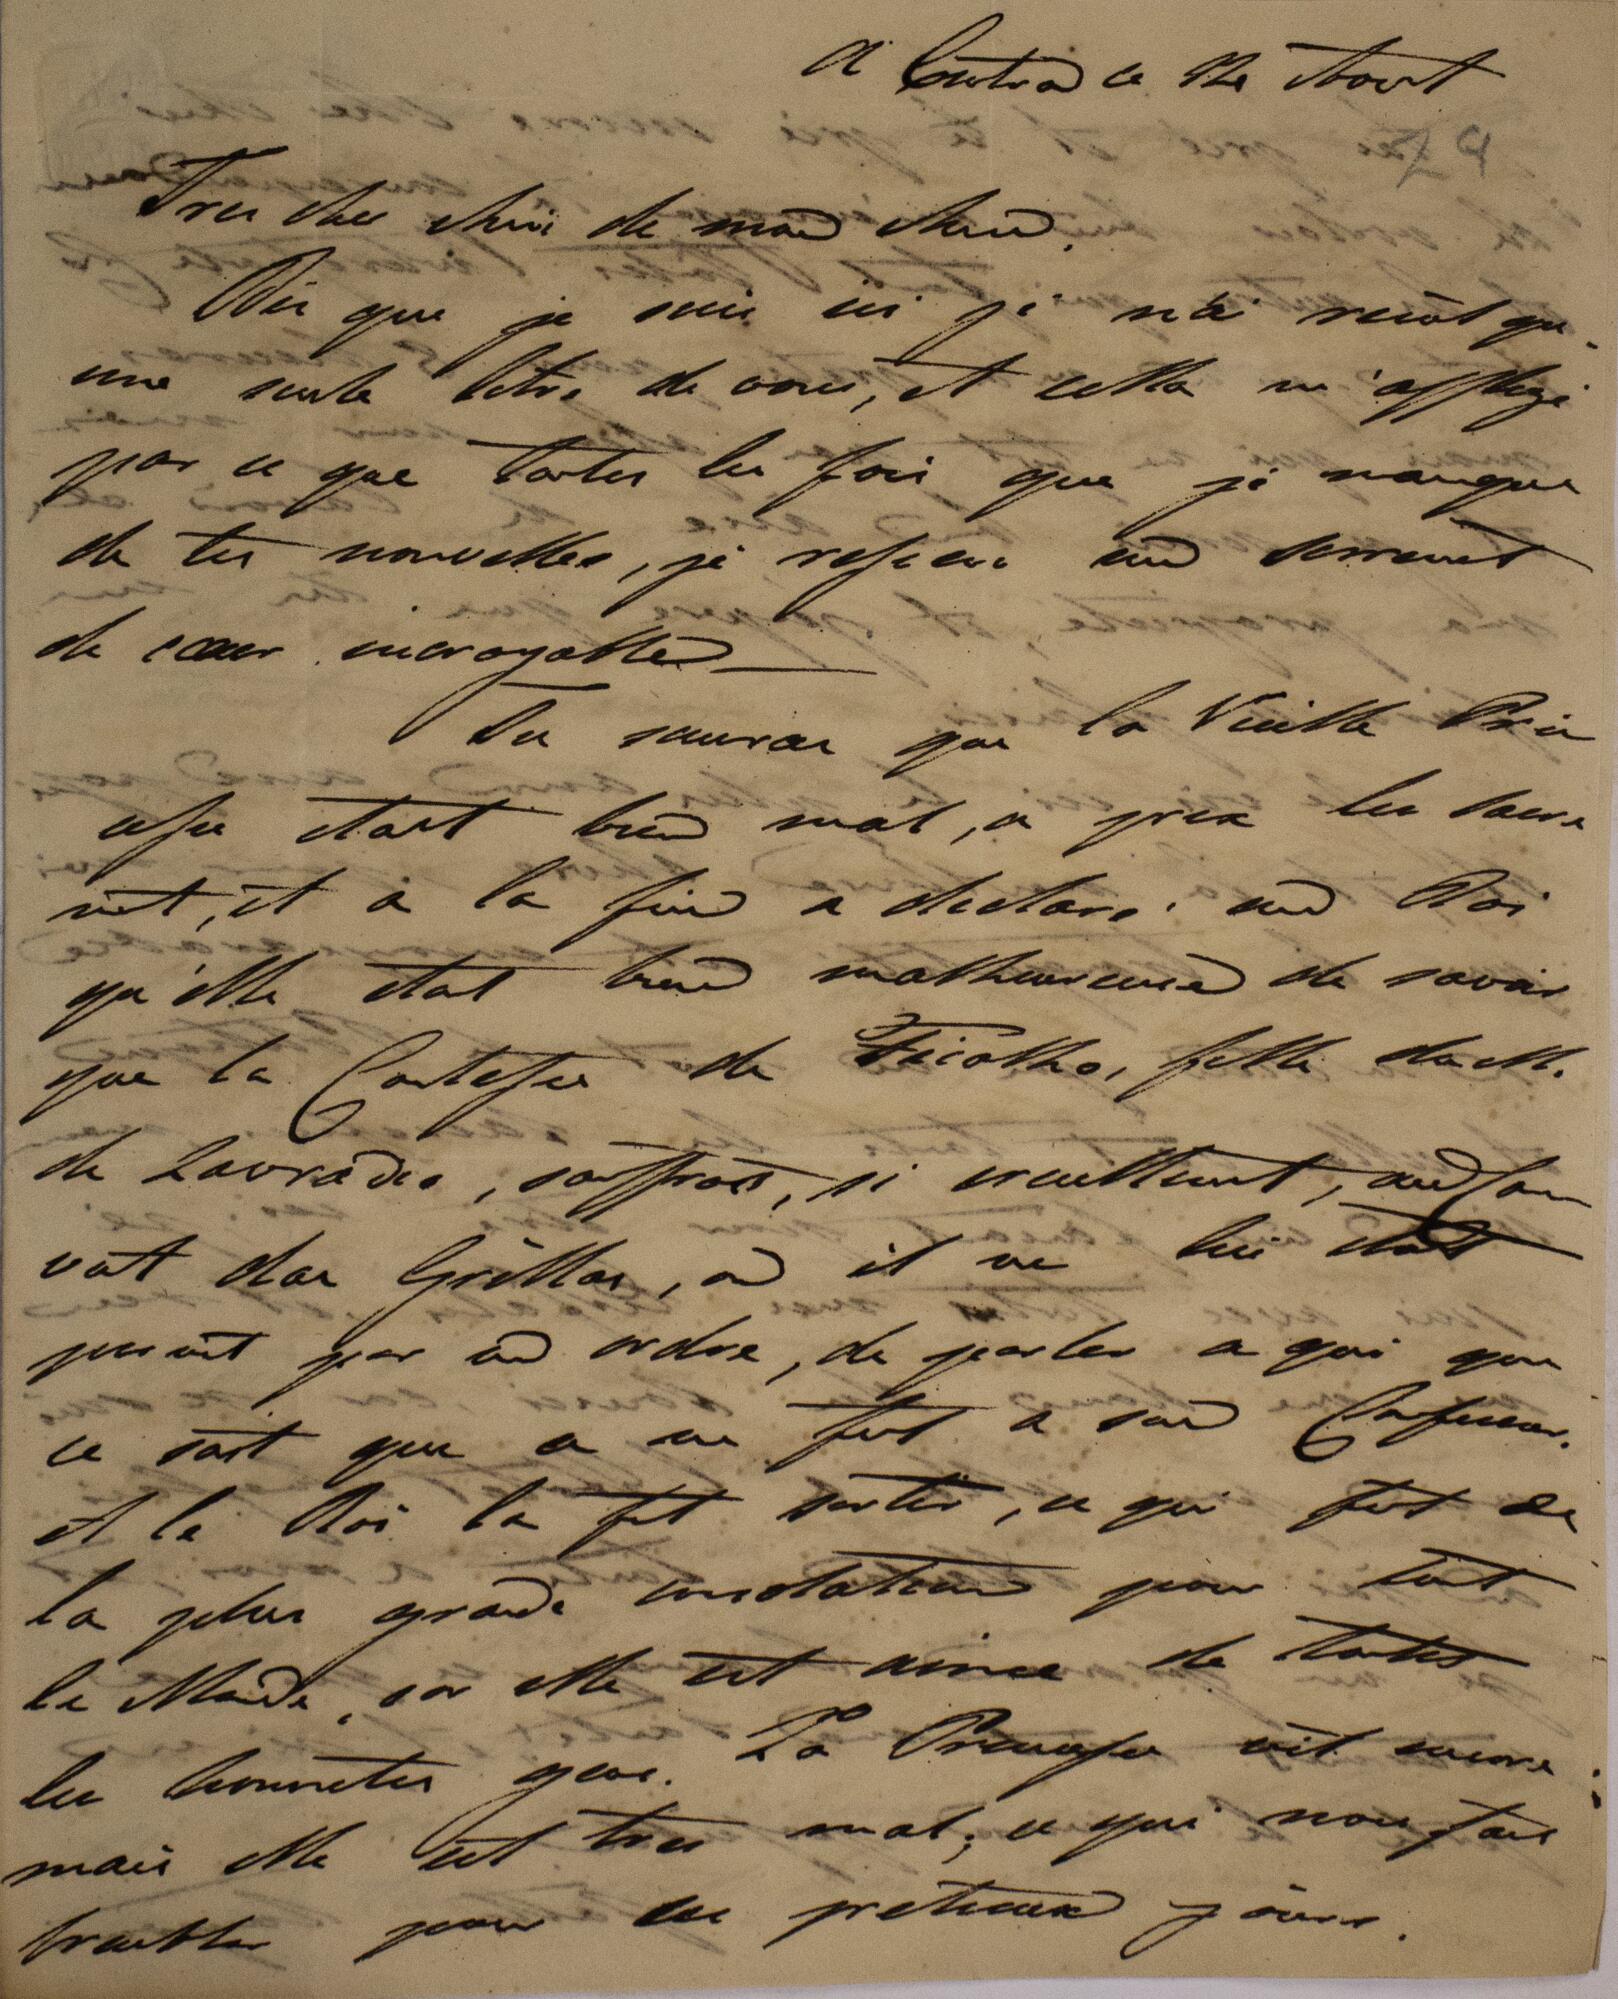 a Cintra ce 12 Aout
Tres cher Ami de mon Ame.
Dès que je suis ici je n'ai reçut qu'
une seule letre de vous, et cella m'afflige
par ce que toutes les fois que je manque
de tes nouvelles, je ressens un serrement
de cœur incroyable
Tu sauras que la Vieille Prin
cesse etait bien mal, a prix les sacre
ment, et a la fin a declaré au Roi
qu'elle etat bien malheureuse de savoir
que la Contesse de Ficalho, fille du M.
de Lavradio, souffroit, si cruellement, au Cou
vent das Grillas, où il ne lui etoit
permit par un ordre, de parler a qui que
ce soit que a ne fut a son Confesseur.
et le Roi la fit sortir, ce qui fut de
la plus grande consolation pour tout
le Monde, car elle est aimee de toutes
les honnetes gens. La Princesse vit encore
mais elle est tres mal; ce qui nous fais
trembler pour ses pretieux jours.